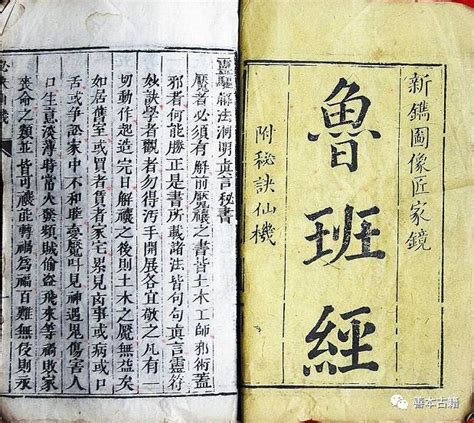 新鐫圖像匠家鏡
魯班經
附秘訣仙機
靈驅解法洞明真言秘書
魘者必須有解前魘禳之書皆土木工師邪術蓋
邪者何能勝正是書所載諸法皆句句真言靈符
妙訣學者觀者勿得污手開展各宜敬之凡有一
切動作起造完日解禳之後則土木之魘無益矣
如居舊室或買者賃者家宅累見凶事或病或口
舌或爭訟家中不和睡魘叶見神遇鬼傷害人
口生意淡薄時當火發頻賊偷盜飛來等禍敗家
喪命之類並皆可禳能轉禍為福百難無侵則永
善本古籍